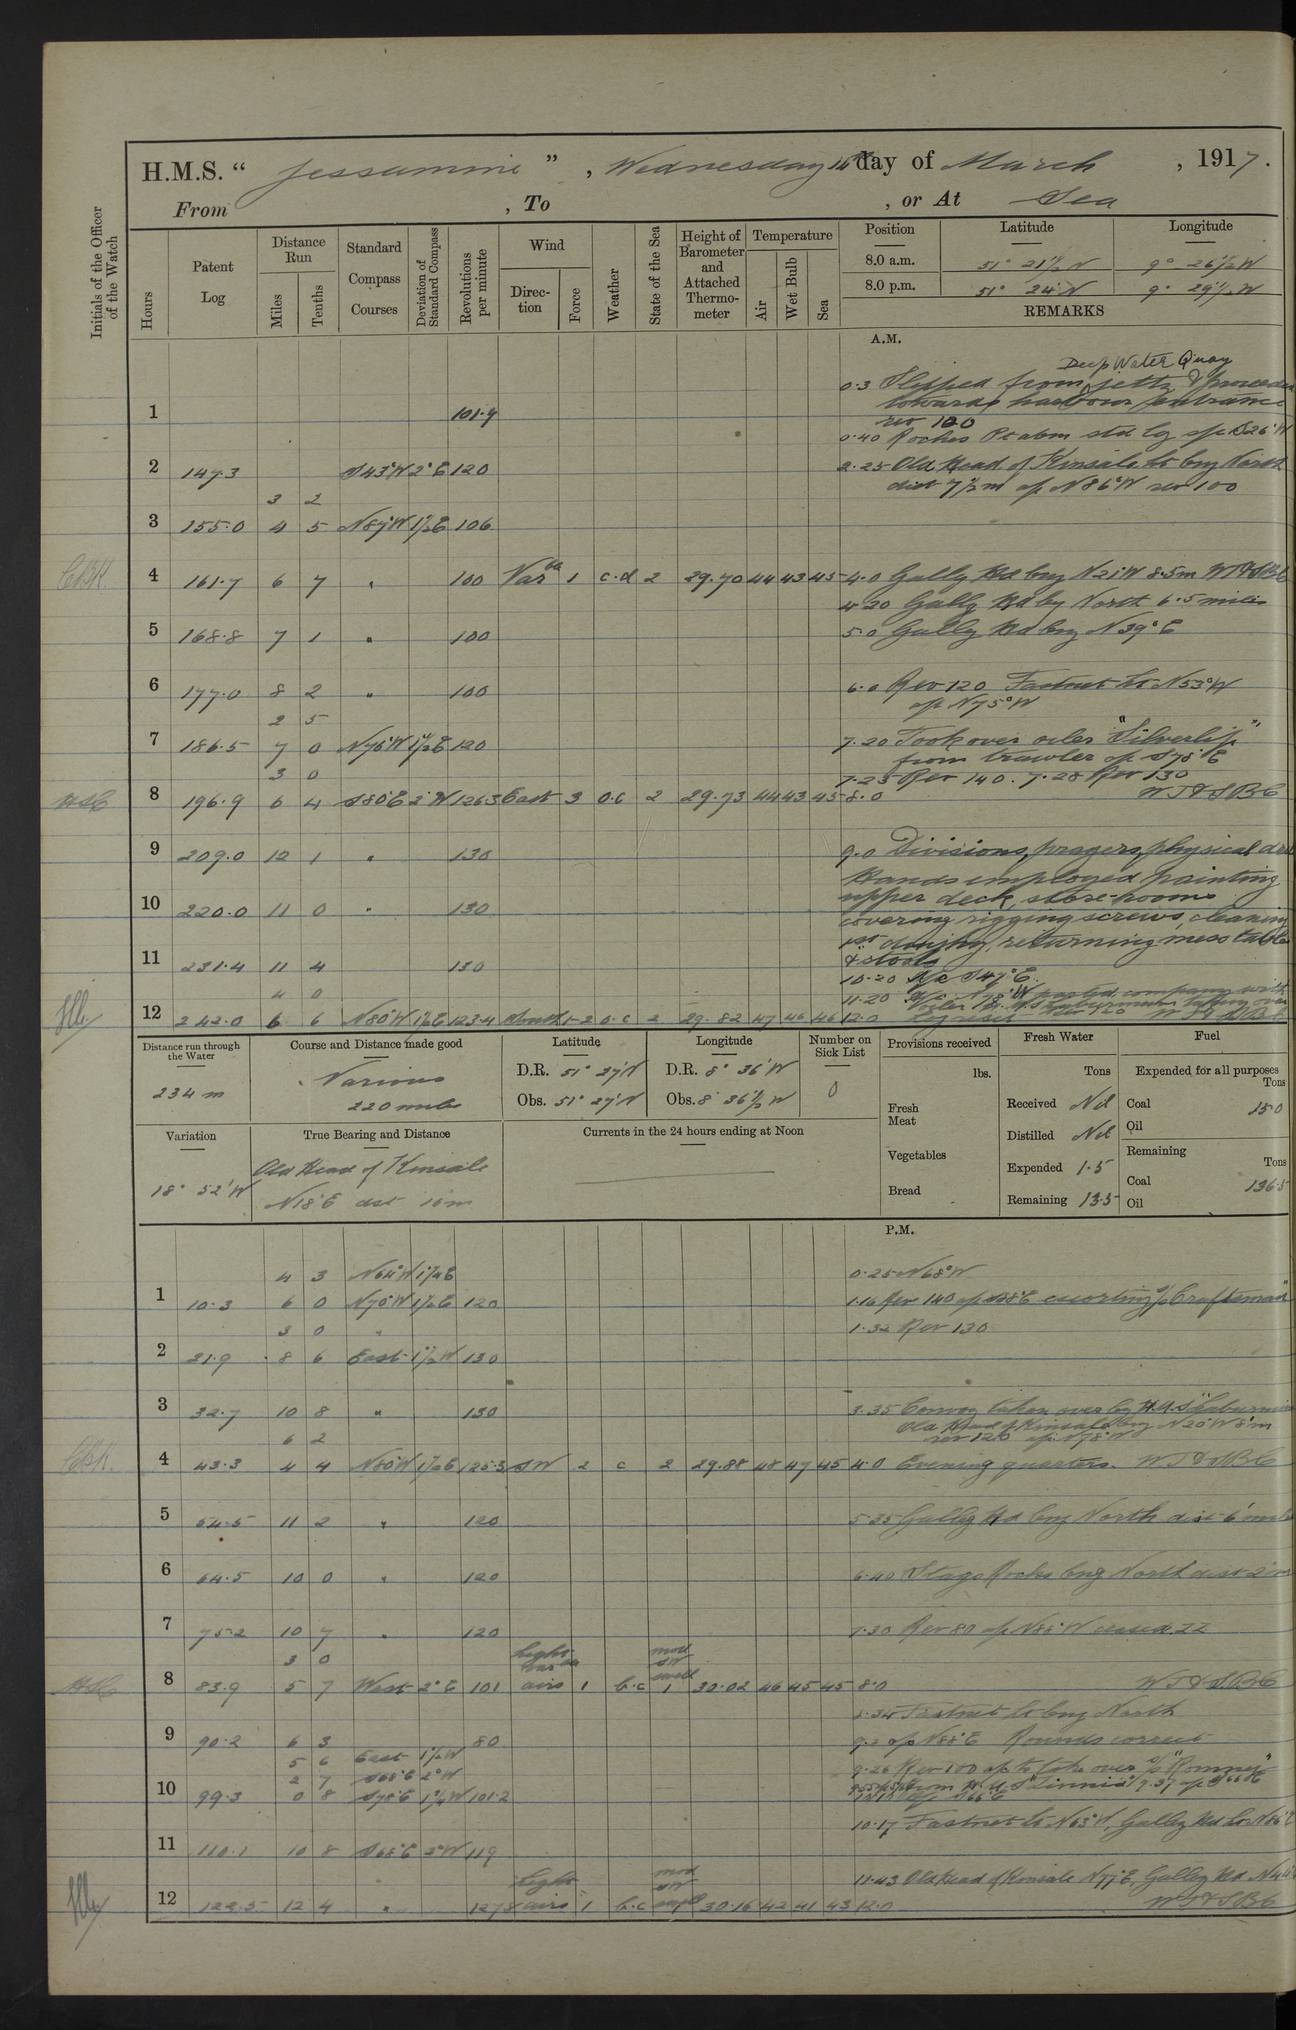 H.M.S. “ Jessamine ” , Wednesday 14th day of March , 1917 .
From , To , or At Sea
Initials of the Officer of the Watch
Hours
Patent Log
Distance Run
Miles
Tenths
Standard Compass Courses
Deviation of Standard Compass
Revolutions per minute
Wind
Direc- tion
Force
Weather
State of the Sea
Height of Barometer and Attached Thermo- meter
Temperature
Air
Wet Bulb
Sea
Position Latitude Longitude
8.0 a.m. 51° 21½ N 9° 26½ W
8.0 p.m. 51° 24' N 9° 29½ W
REMARKS
A.M.
Deep Water Quay
0.3 Slipped from jetty & proceeded
1 101.4 towards harbour entrance
rev 120
0.40 Roches Pt abm
2 147.3 S43°W 2°E 120 2.25 Old Head of Kinsale Lt brg North
3 2 dist 7½m a/c N86°W rev 100
3 155.0 4 5 N87°W 1½E 106
4 161.7 6 7 " 100 Var ble 1 c.d 2 29.70 44 43 45 4.0 Gally Hd brg N21°W 8.5m WT&SBC
4.20 Gally Hd by North 6.5 miles
5 168.8 7 1 " 100 5.0 Gally Hd brg N39°E
6 177.0 8 2 " 100 6.0 Rev 120 Fastnet Lt N53°W
2 5 a/c N75°W
7 186.5 7 0 N76°W 1½E 120 7.20 Took over oiler "Silverlip"
3 0 from trawler a/c S78°E
7.25 Rev 140. 7.28 Rev 130
8 196.9 6 4 S80°E 2°W 126.3 East 3 o.c 2 29.73 44 43 45 8.0 WT&SBC
9 209.0 12 1 " 130 9.0 Divisions, prayers, physical drill
Hands employed painting
10 220.0 11 0 " 130 upper deck, store-rooms
covering rigging screws, cleaning
11 231.4 11 4 130 returning mess tables
& stools
10.20 a/c S47°E.
4 0 11.20 a/c N78°W parted company with
12 242.0 6 6 N80°W 1½E 123.4 South 1-2 o.c 2 29.82 47 46 46 12.0
Distance run through the Water
234 m
Course and Distance made good
Various
220 miles
Latitude
D.R. 51° 27' N
Obs. 51° 27' N
Longitude
D.R. 8° 36' W
Obs. 8° 36½ W
Number on Sick List
0
Provisions received
lbs.
Fresh Meat
Vegetables
Bread
Fresh Water
Tons
Received Nil
Distilled Nil
Expended 1.5
Remaining 13.5
Fuel
Expended for all purposes
Tons
Coal 15.0
Oil
Remaining
Tons
Coal 136.5
Oil
Variation
18° 52' W
True Bearing and Distance
Old Head of Kinsale
N18°E dist 10m
Currents in the 24 hours ending at Noon
P.M.
4 3 N64°W 1½E 0.25 N68°W
1 10.3 6 0 N70°W 1½E 120 1.16 Rev 140 escorting s/s "Craftsman"
3 0 " 1.32 Rev 130
2 21.9 8 6 East 1½W 130
3 32.7 10 8 " 130 3.35 Convoy taken over by H.M.S "Laburnum
6 2 Old Head of Kinsale brg N20°W 8'm
rev 120 a/c N78°W
4 43.3 4 4 N80°W 1½E 125.3 SW 2 c 2 29.88 48 47 45 4.0 Evening quarters. WT&SBC
5 54.5 11 2 " 120 5.35 Gally Hd brg North dist 6' miles
6 64.5 10 0 " 120 6.40 Stags Rocks brg North dist 2'
7 75.2 10 7 " 120 7.30 Rev 80 a/c N85°W
3 0 light var ble mod SW swell
8 83.9 5 7 West 2°E 101 airs 1 b.c 1 30.02 46 45 45 8.0 WT&SBC
8.34 Fastnet Lt brg North
9 90.2 6 3 80 9.2 a/c N88°E Rounds correct
5 6 East 1½W 9.26 Rev 100 a/c to take over s/s "Romney"
2 7 S68°E 2°W from H.M.S "Zinnia" 9.37 a/c S66°E
10 99.3 0 8 S78°E 1¾W 101.2
10.17 Fastnet Lt N63°W, Galley Hd Lt
11 110.1 10 8 S68°E 2°W 119
light mod SW 11.43 Old Head of Kinsale N77°E, Galley Hd
12 122.5 12 4 " 127.8 airs 1 b.c swell 30.16 42 41 43 12.0 WT&SBC